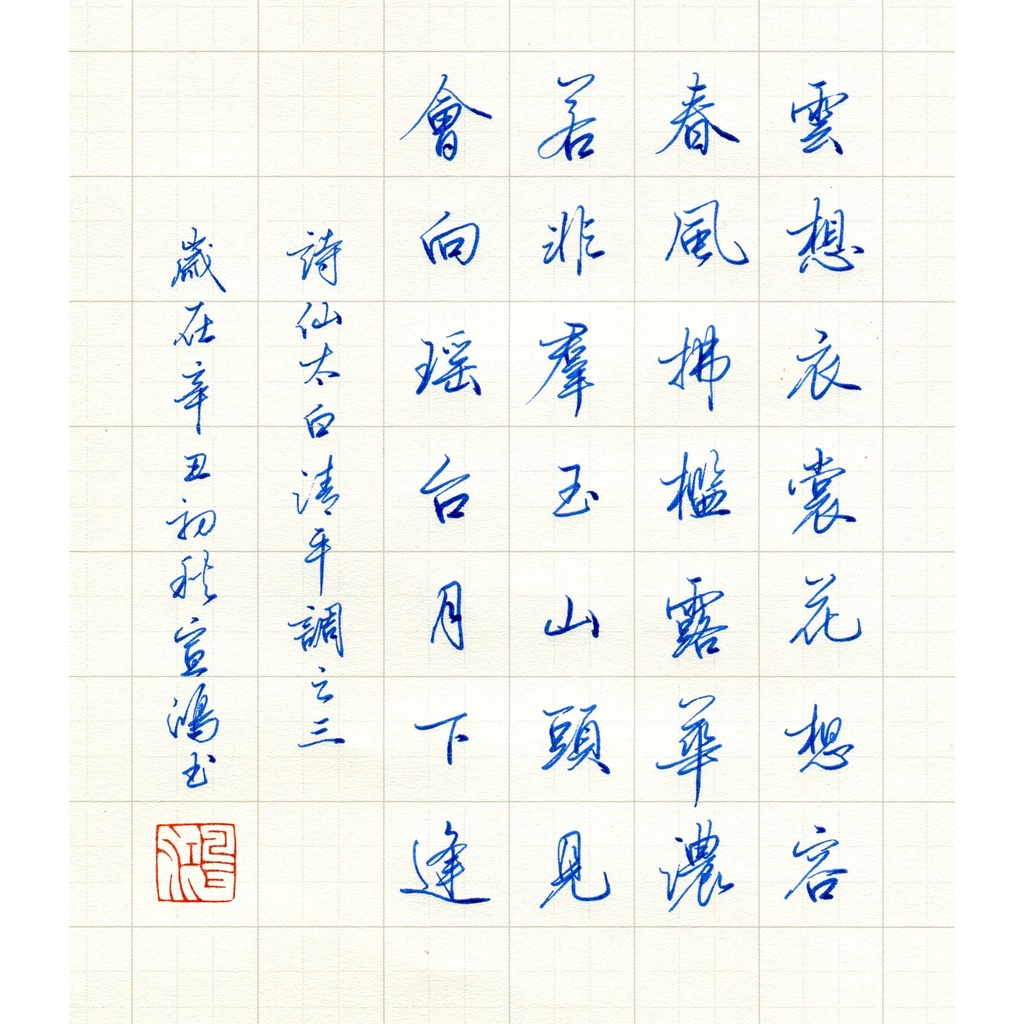 雲想衣裳花想容
春風拂檻露華濃
若非羣玉山頭見
會向瑶台月下逢
詩仙太白清平調之三
歲在辛丑初秋宣鴻书